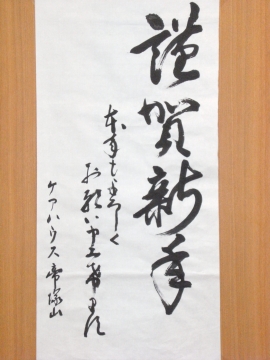 謹賀新年
本年も宜しく
お願い申し上げます
ケアハウス帝塚山